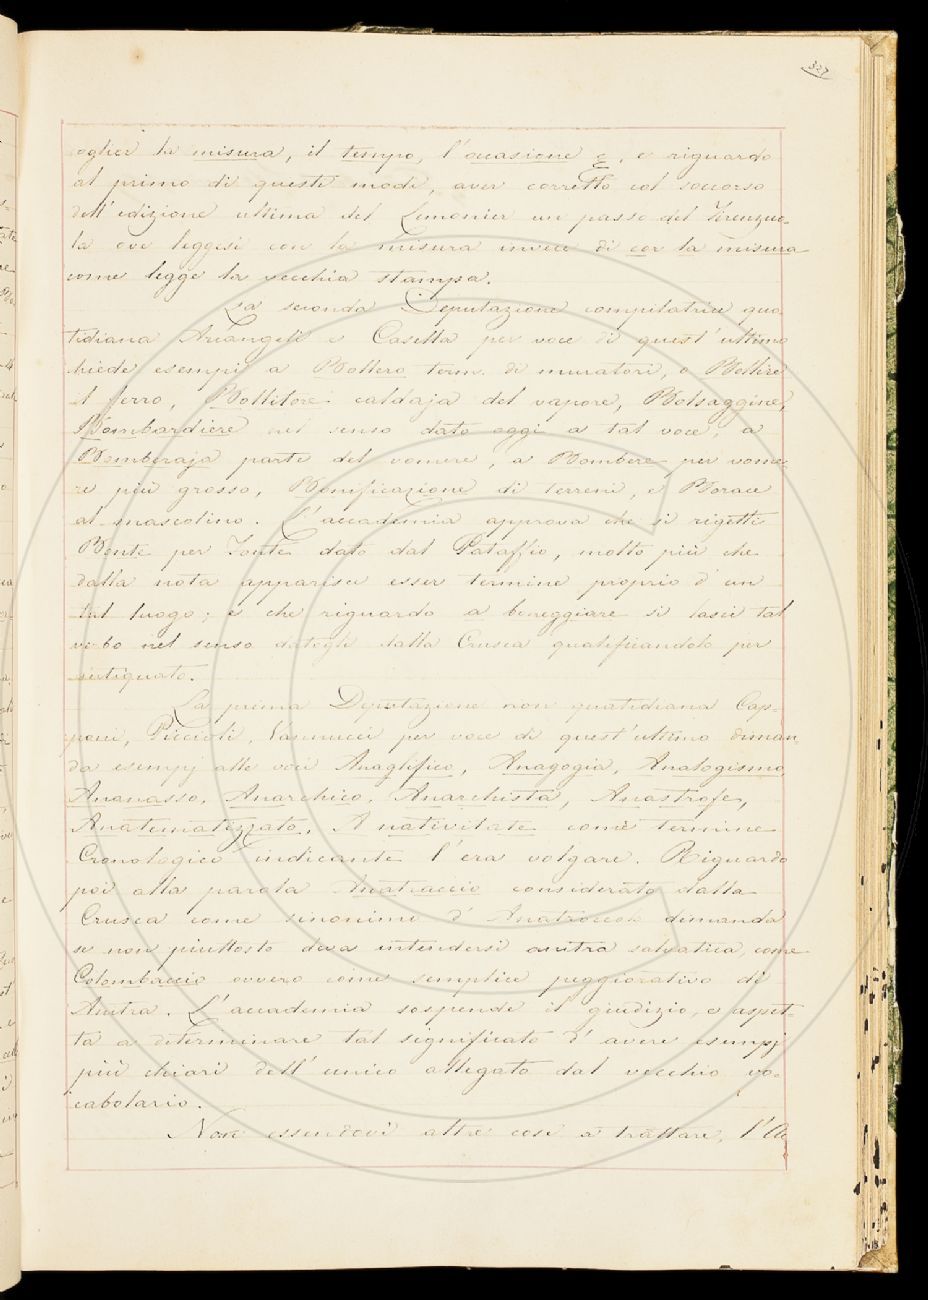 327
oglier la misura, il tempo, l'occasione &, e riguardo
al primo di questi modi, aver corretto col soccorso
dell'edizione ultima del Lemonier un passo del Firenzuo-
la ove leggesi con la misura invece di cor la misura
come legge la vecchia stampa.
La seconda Deputazione compilatrice quo
tidiana Arcangeli e Casella per voce di quest'ultimo
chiede esempi a Bollero term. di muratori, a Bollire
il ferro, Bollitore caldaja del vapore, Bolsaggine,
Bombardiere nel senso dato oggi a tal voce, a
Bomberaja parte del vomere, a Bombere per vome-
re più grosso, Bonificazione di terreni, e Borace
al mascolino. L'accademia approva che si rigetti
Bonte per Fonte dato dal Pataffio, molto più che
dalla nota apparisce esser termine proprio d'un
tal luogo; e che riguardo a boneggiare si lasci tal
verbo nel senso datogli dalla Crusca qualificandolo per
antiquato.
La prima Deputazione non quotidiana Cap-
poni, Piccioli, Vannucci per voce di quest'ultimo diman
da esempj alle voci Anaglifico, Anagogia, Analogismo,
Ananasso, Anarchico, Anarchista, Anastrofe,
Anatematizzato, A nativitate come termine
Cronologico indicante l'era volgare. Riguardo
poi alla parola Anatraccio considerato dalla
Crusca come sinonimo d'Anatroccolo dimanda
se non piuttosto deva intendersi anitra salvatica, come
Colombaccio ovvero come semplice peggiorativo di
Anitra. L'accademia sospende il giudizio, e aspet-
ta a determinare tal significato d'avere esempj
più chiari dell'unico allegato dal vecchio vo-
cabolario.
Non essendovi altre cose a trattare, l'Ac